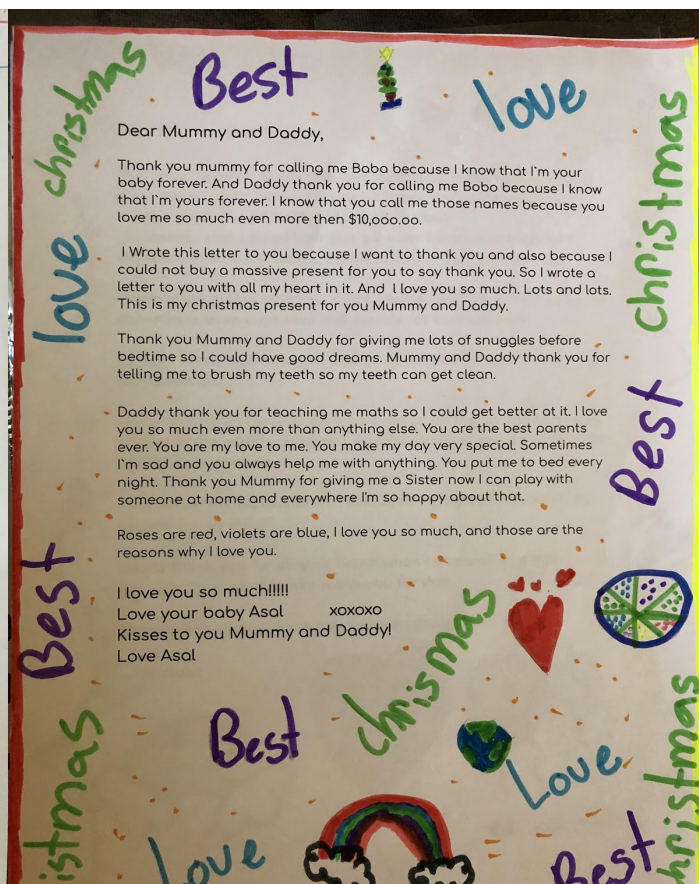 Best
love
christmas
christmas
love
Dear Mummy and Daddy,
Thank you mummy for calling me Baba because I know that I`m your
baby forever. And Daddy thank you for calling me Bobo because I know
that I`m yours forever. I know that you call me those names because you
love me so much even more then $10,ooo.oo.
I Wrote this letter to you because I want to thank you and also because I
could not buy a massive present for you to say thank you. So I wrote a
letter to you with all my heart in it. And I love you so much. Lots and lots.
This is my christmas present for you Mummy and Daddy.
Thank you Mummy and Daddy for giving me lots of snuggles before
bedtime so I could have good dreams. Mummy and Daddy thank you for
telling me to brush my teeth so my teeth can get clean.
Daddy thank you for teaching me maths so I could get better at it. I love
you so much even more than anything else. You are the best parents
ever. You are my love to me. You make my day very special. Sometimes
I`m sad and you always help me with anything. You put me to bed every
night. Thank you Mummy for giving me a Sister now I can play with
someone at home and everywhere I'm so happy about that.
Roses are red, violets are blue, I love you so much, and those are the
reasons why I love you.
I love you so much!!!!!
Love your baby Asal xoxoxo
Kisses to you Mummy and Daddy!
Love Asal
Best
Best
chrismas
Best
Love
istmas
Love
Best
hristmas